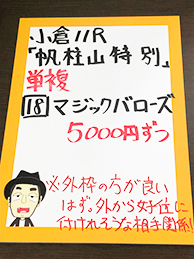 小倉11R
「帆柱山特別」
単複
18 マジックバローズ
5000円ずつ
※外枠の方が良い
はず。外から好位に
付けれそうな相手関係!